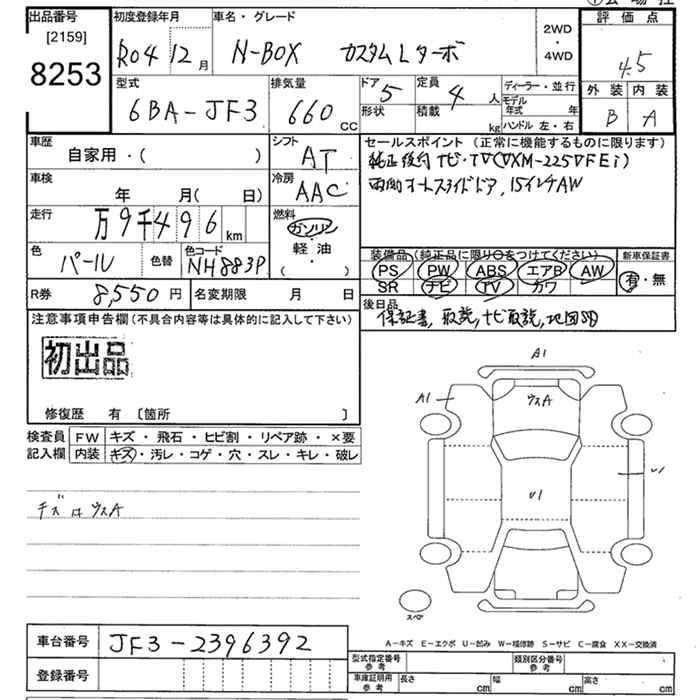 出品番号
[2159]
8253
初度登録年月
R04 12月
車名・グレード
N-BOX カスタムLターボ
2WD
・
4WD
評価点
4.5
外装 内装
B A
型式
6BA-JF3
排気量
660 CC
ドア 5
形状
定員 4 人
積載 kg
ディーラー・並行
モデル年式 年
ハンドル 左・右
車歴
自家用・( )
シフト
AT
車検
年 月( 日)
冷房
AAC
走行
万9千496 km
燃料
ガソリン
・
軽油
( )
色
パール
色替
色コード
NH883P
R券 8,550円
名変期限 月 日
セールスポイント(正常に機能するものに限ります)
純正後付ナビ・TV(VXM-225VFEi)
両側オートスライドドア, 15インチAW
装備品(純正品に限り○をつけてください)
PS PW ABS エアB AW
SR ナビ TV カワ
新車保証書
有・無
後日品
保証書, 取説, ナビ取説, 地図SD
注意事項申告欄(不具合内容等は具体的に記入して下さい)
初出品
修復歴 有 [箇所 ]
検査員記入欄
FW キズ・飛石・ヒビ割・リペア跡・×要
内装 キズ・汚レ・コゲ・穴・スレ・キレ・破レ
A1
A1
ウスA
U1
U1
スペア
A-キズ E-エクボ U-凹み W-補修跡 S-サビ C-腐食 XX-交換済
車台番号 JF3-2396392
登録番号
型式指定番号 参考
類別区分番号 参考
車庫証明用 参考
長さ cm 幅 cm 高さ cm